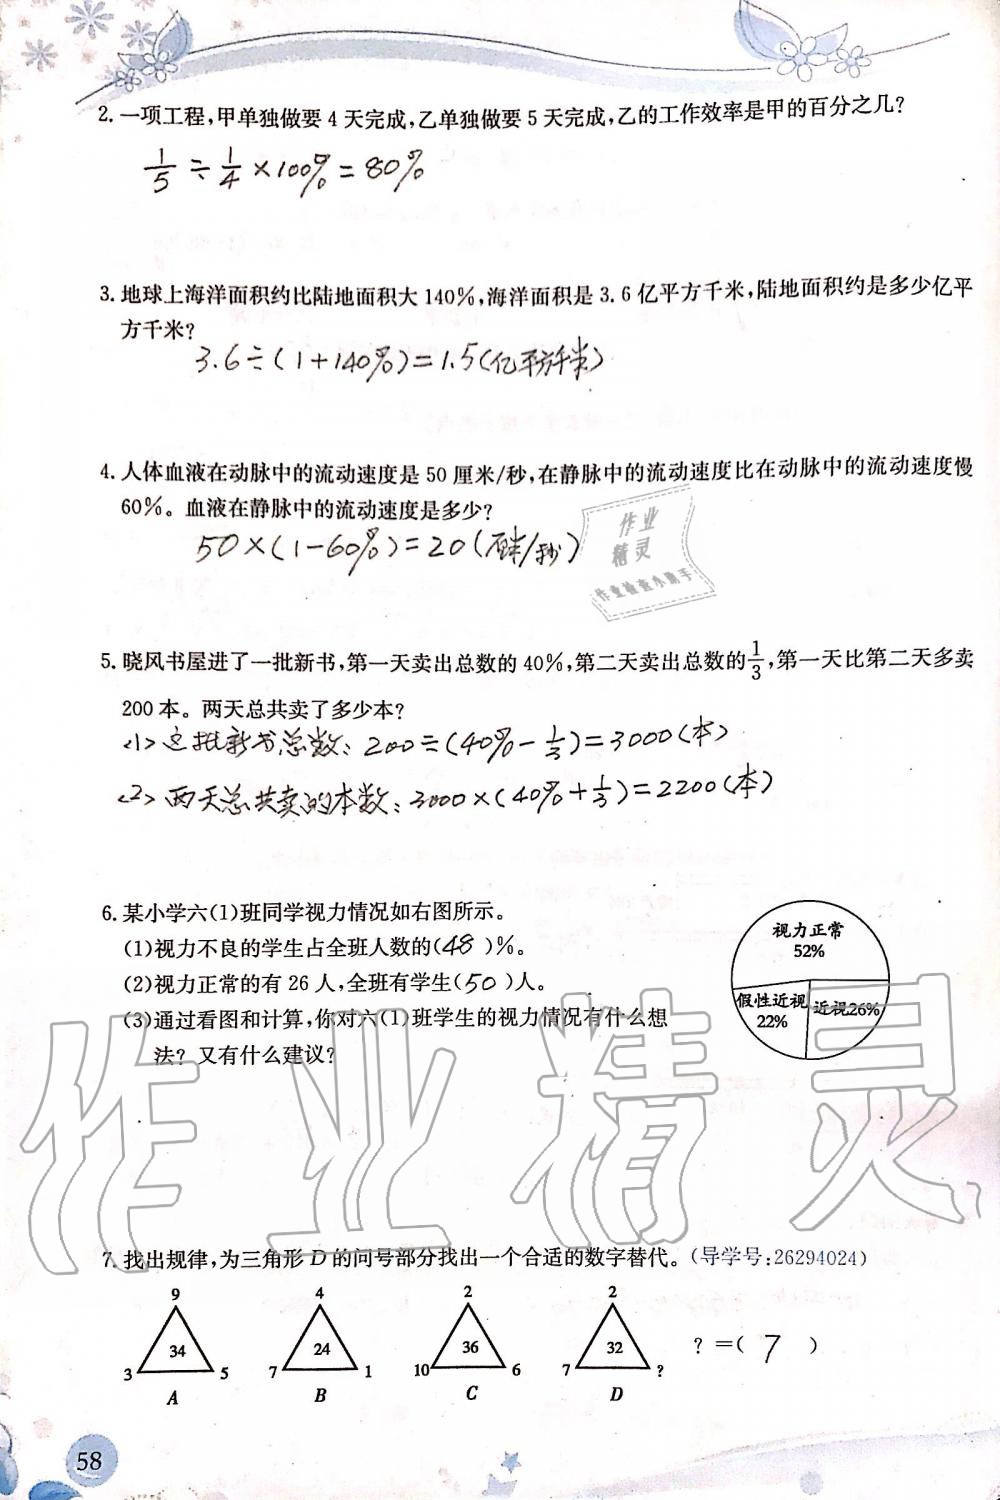 2. 一项工程,甲单独做要 4 天完成,乙单独做要 5 天完成,乙的工作效率是甲的百分之几?
1/5 ÷ 1/4 ×100%=80%
3. 地球上海洋面积约比陆地面积大 140%,海洋面积是 3.6 亿平方千米,陆地面积约是多少亿平
方千米?
3.6÷(1+140%)=1.5(亿平方千米)
4. 人体血液在动脉中的流动速度是 50 厘米/秒,在静脉中的流动速度比在动脉中的流动速度慢
60%。血液在静脉中的流动速度是多少?
50×(1-60%)=20(厘米/秒)
作业
精灵
作业检查小助手
5. 晓风书屋进了一批新书,第一天卖出总数的 40%,第二天卖出总数的1/3,第一天比第二天多卖
200 本。两天总共卖了多少本?
<1> 这批新书总数: 200÷(40%-1/3)=3000(本)
<2> 两天总共卖的本数: 3000×(40%+1/3)=2200(本)
6. 某小学六(1)班同学视力情况如右图所示。
(1)视力不良的学生占全班人数的(48)%。
(2)视力正常的有 26 人,全班有学生(50)人。
(3)通过看图和计算,你对六(1)班学生的视力情况有什么想
法? 又有什么建议?
视力正常
52%
假性近视
22%
近视26%
作业精灵
7. 找出规律,为三角形 D 的问号部分找出一个合适的数字替代。(导学号:26294024)
9 4 2 2
34 24 36 32 ?=( 7 )
3 5 7 1 10 6 7 ?
A B C D
58